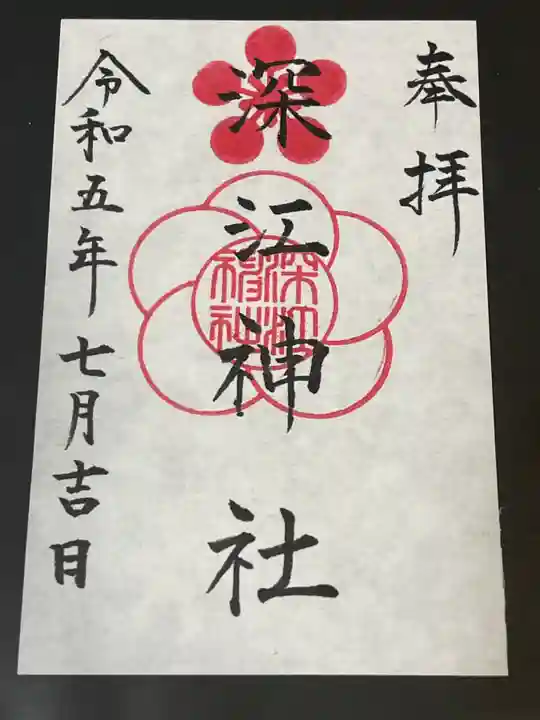 奉拝
深江神社
深江神社
令和五年七月吉日